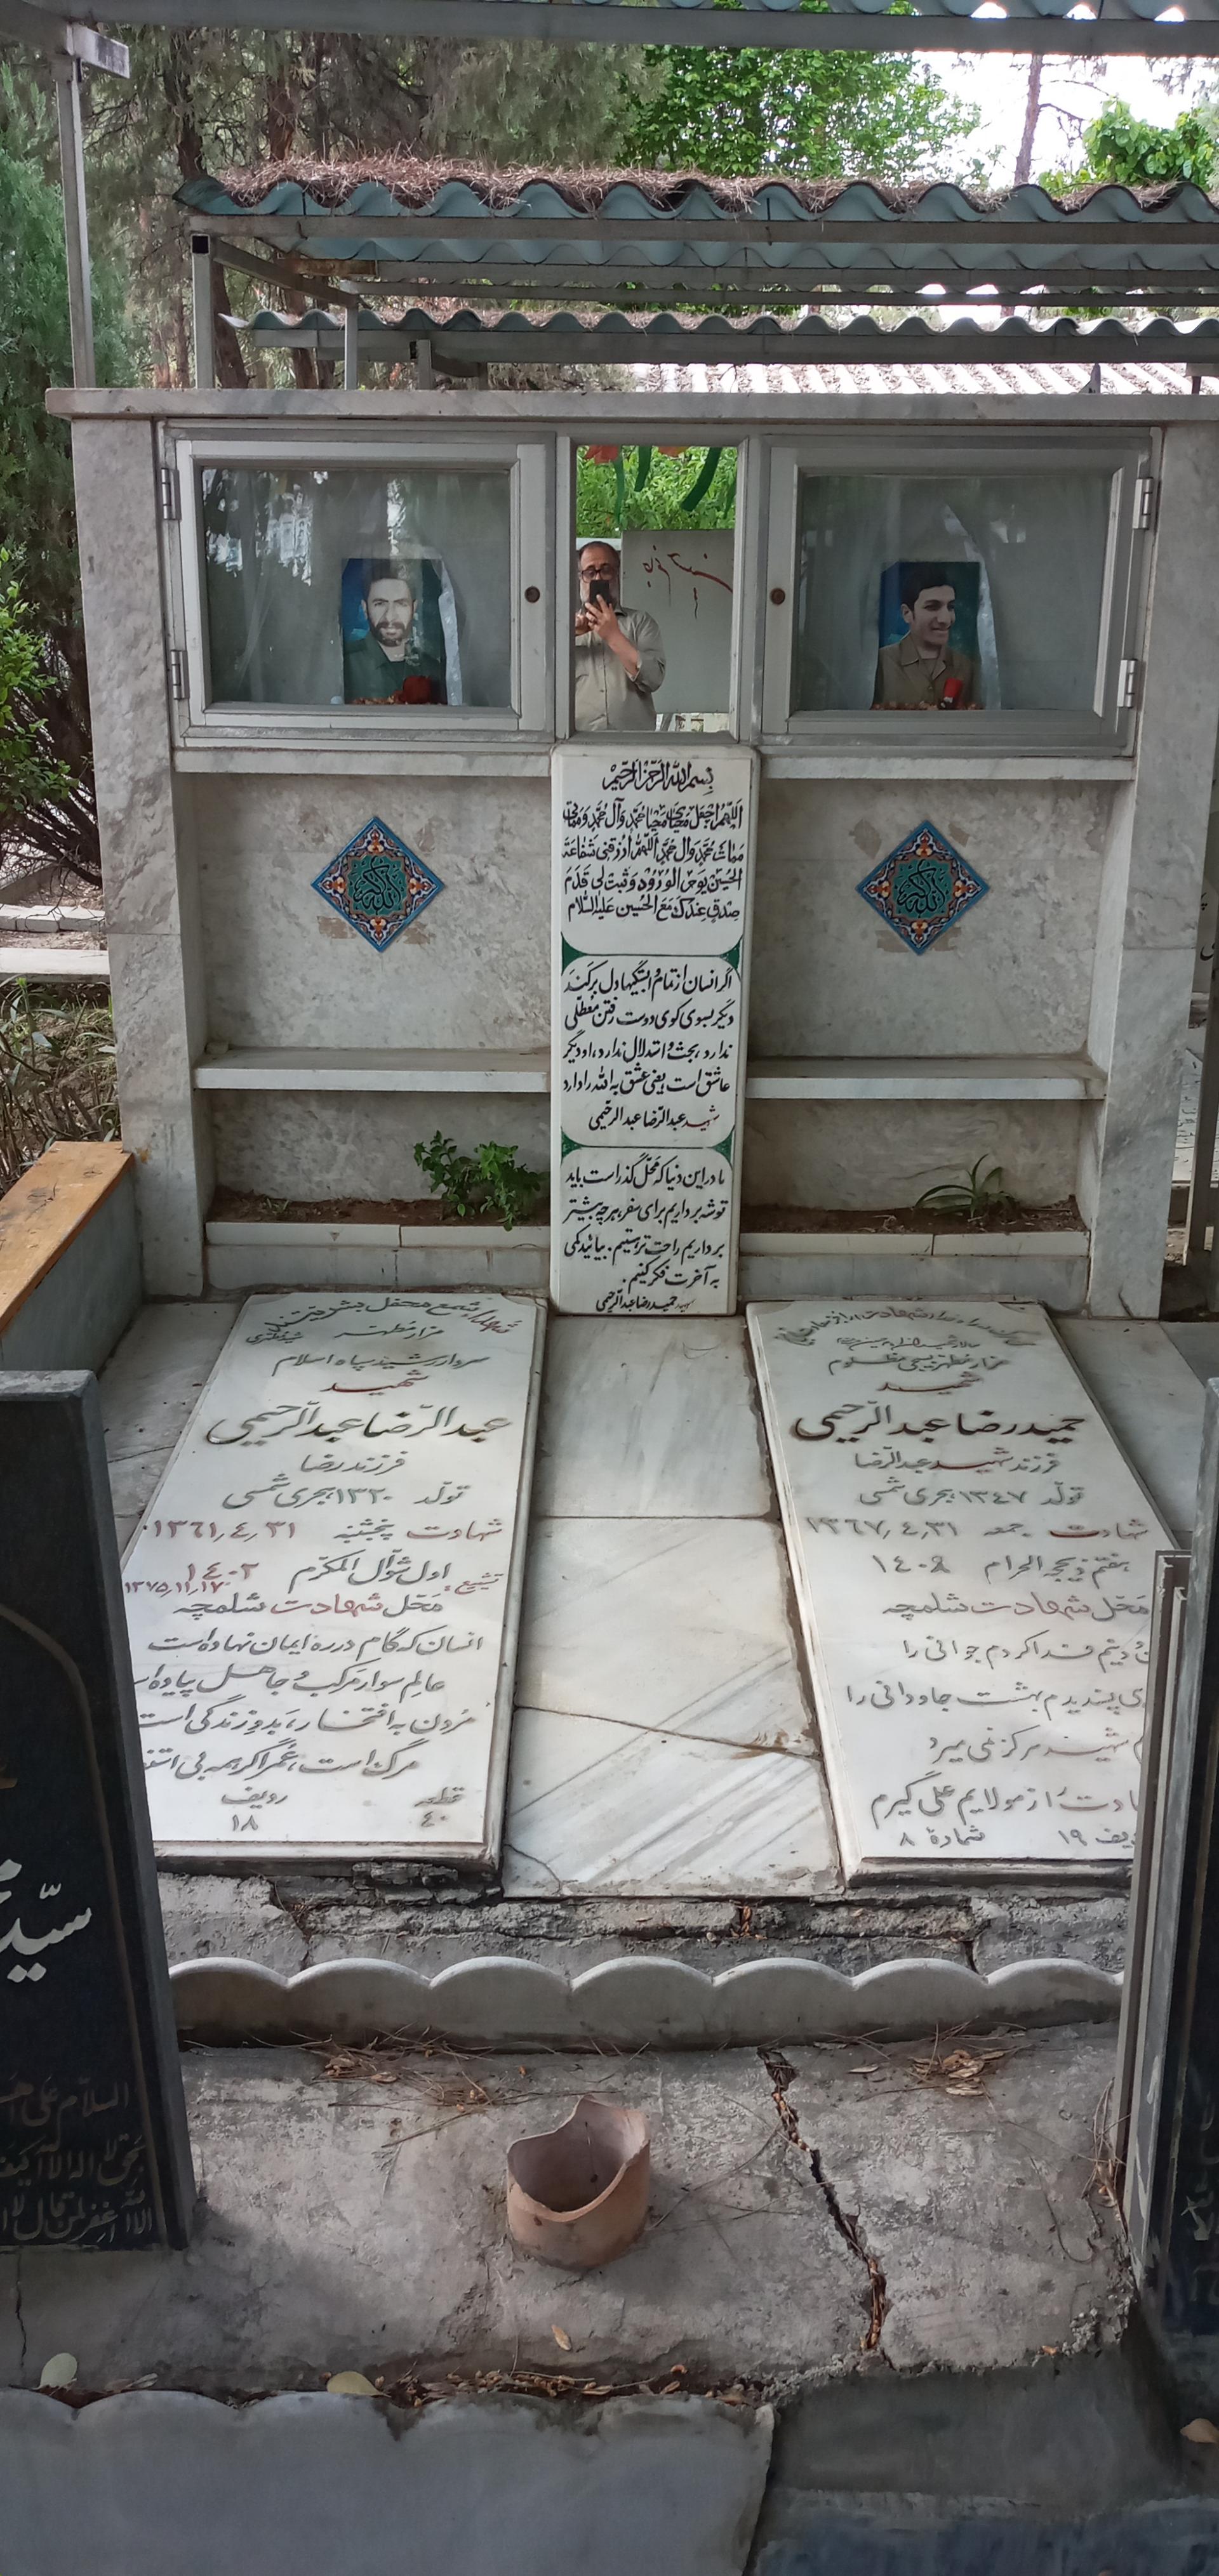 بسم الله الرحمن الرحیم
اَللّهُمَّ اجْعَل مَحیایَ مَحیا مُحَمَّدٍ وَ آلِ مُحَمَّدٍ وَ مَماتی
مَماتَ مُحَمَّدٍ وَ آلِ مُحَمَّدٍ اَللّهُمَّ ارْزُقنی شَفاعَةَ
الحُسَین یَومَ الوُرُود وَ ثَبِّت لی قَدَمَ
صِدقٍ عِندَکَ مَعَ الحُسَین علیه السّلام
اگر انسان از تمام وابستگیها دل برکَند
دیگر بسوی کوی دوست رفتن مُعطّلی
ندارد، بحث و استدلال ندارد، او دیگر
عاشق است یعنی عشق به الله را دارد
شهید عبدالرّضا عبدالرّحیمی
ما در این دنیا که مَحَلّ گذر است باید
توشه برداریم برای سفر، هر چه بیشتر
برداریم راحت تر هستیم. بیائید کمی
به آخرت فکر کنیم.
شهید حمیدرضا عبدالرّحیمی
شهدا شمع محفل بشریتند
شهید مطهری
مزار مُطهّر
سردار رشید سپاه اسلام
شهید
عبدالرّضا عبدالرّحیمی
فرزند رضا
تولّد ۱۳۲۰ هجری شمسی
شهادت پنجشنبه ۱۳۶۱٫۴٫۳۱
اول شوّال المکرّم ۱۴۰۲
تشییع: ۱۳۷۵٫۱۱٫۱۷
مَحَل شهادت شلمچه
انسان که گام در ره ایمان نهاده است
عالِم سوار مَرکب و جاهل پیاده
مُردن به افتخار، بَدوِ زندگی است
مرگ است، عُمر اگر همه بی
قطعه ردیف
۴۰ ۱۸
مزار مطهر بسیجی مظلوم
شهید
حمیدرضا عبدالرّحیمی
فرزند شهید عبدالرّضا
تولّد ۱۳۴۷ هجری شمسی
شهادت جمعه ۱۳۶۷٫۴٫۳۱
هفتم ذیحجه الحرام ۱۴۰۸
مَحَل شهادت شلمچه
دینم فدا کردم جوانی را
پسندیدم بهشت جاودانی را
شهید هرگز نمی میرد
از مولایم علی گیرم
ردیف ۱۹ شمارهٔ ۸
الله اکبر
الله اکبر
سیّد
السلام علی